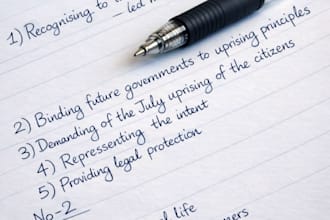 1) Recognising to
– led m
2) Binding future governments to uprising principles
3) Demanding of the July uprising of the citizens
4) Repressenting the intent
5) Providing legal protection
No-2
al life
mers